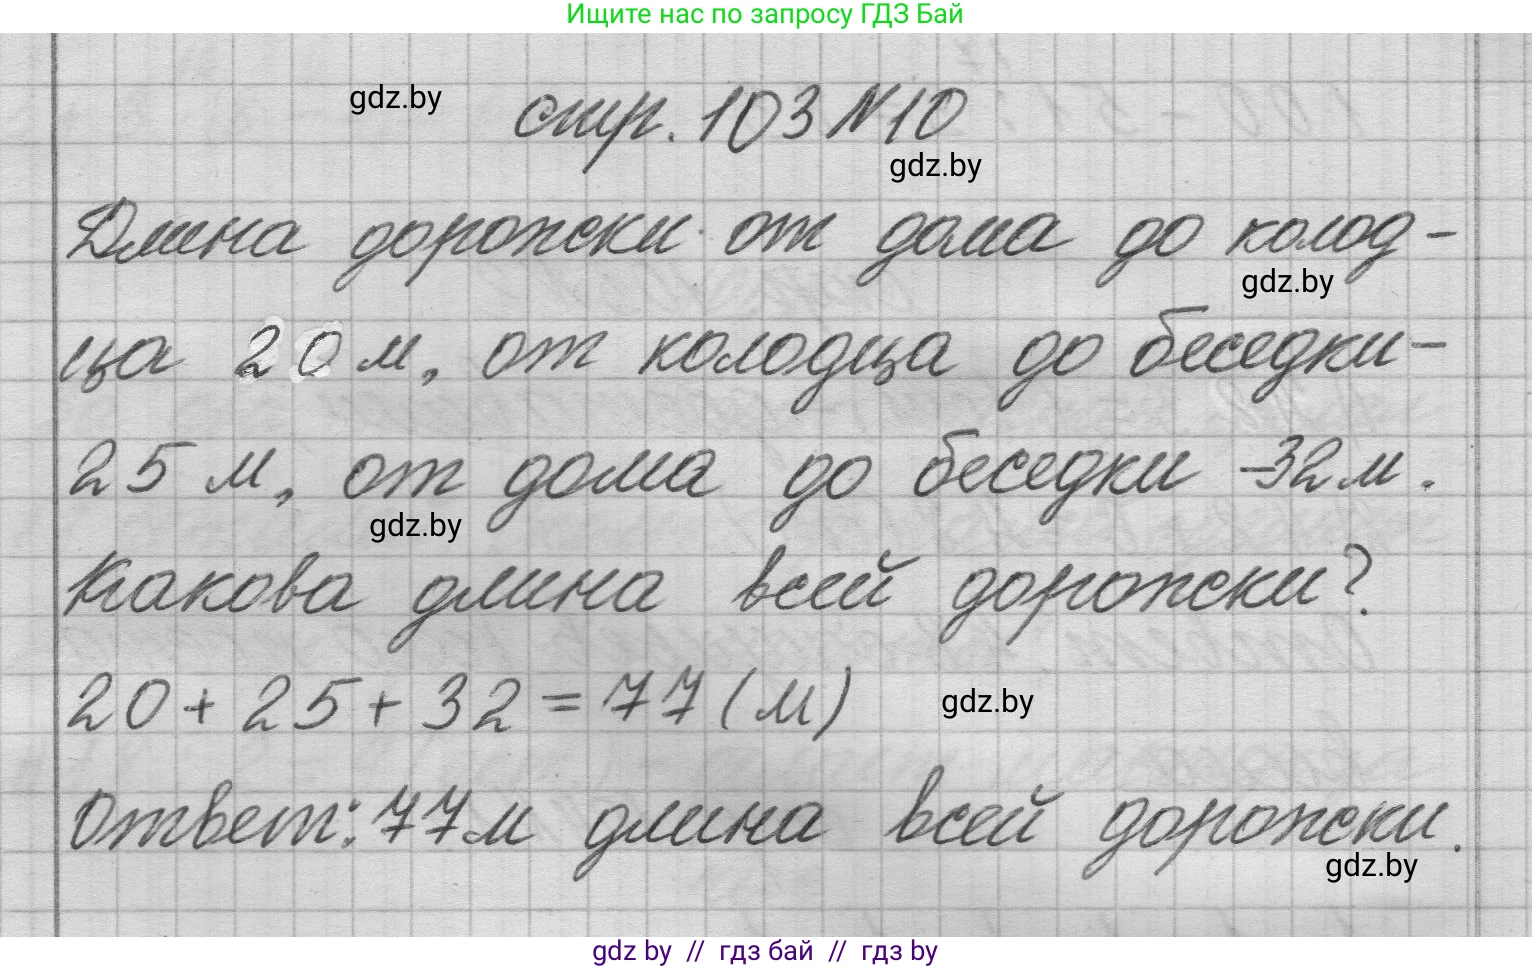 Ищите нас по запросу ГДЗ Бай
gdz.by
стр. 103 N10
gdz.by
Длина дорожки от дома до колод-
gdz.by
ца 20 м, от колодца до беседки -
25 м, от дома до беседки - 32 м.
gdz.by
Какова длина всей дорожки?
20 + 25 + 32 = 77 (м)
gdz.by
Ответ: 77 м длина всей дорожки.
gdz.by
gdz by // гдз бай // гдз by